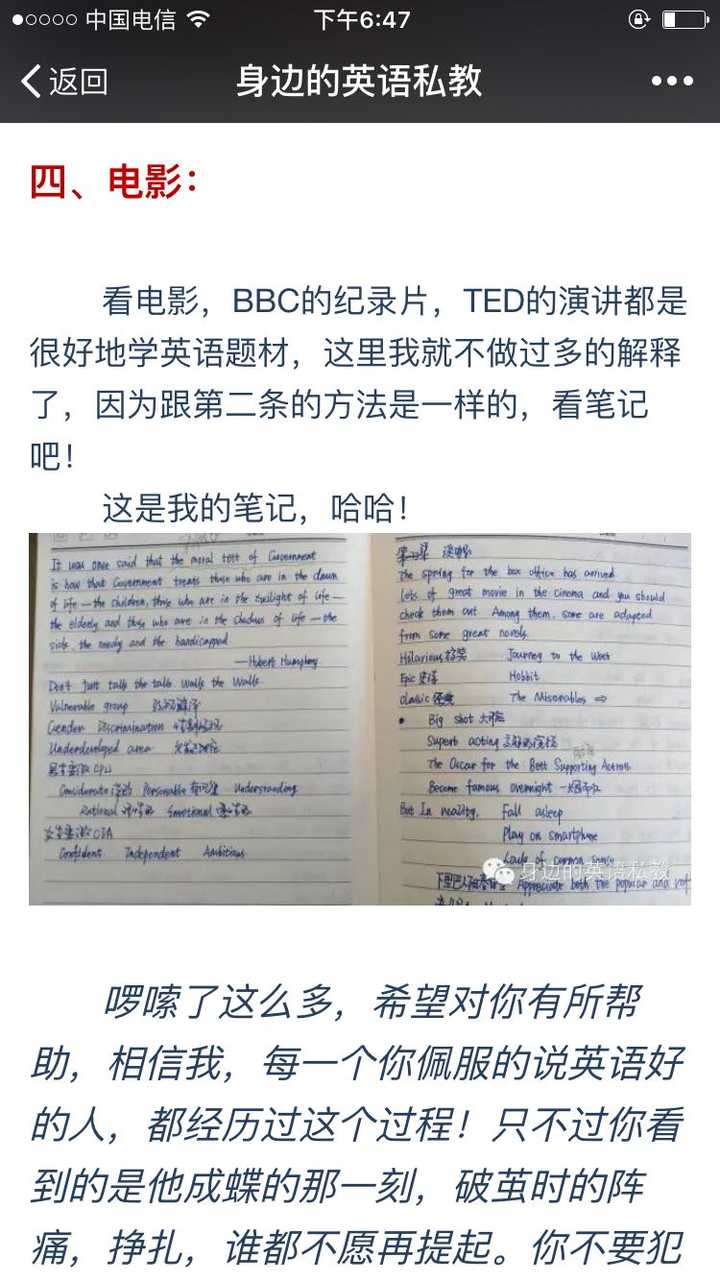 中国电信
下午6:47
返回
身边的英语私教
四、电影：
看电影，BBC的纪录片，TED的演讲都是
很好地学英语题材，这里我就不做过多的解释
了，因为跟第二条的方法是一样的，看笔记
吧！
这是我的笔记，哈哈！
It was once said that the moral test of Government
is how that Government treats those who are in the dawn
of life — the children, those who are in the twilight of life —
the elderly and those who are in the shadows of life — the
sick, the needy and the handicapped
— Hubert Humphrey
Don't just talk the talk walk the walk
Vulnerable group
Gender Discrimination 性别歧视
Underdeveloped area
Considerate Personable Understanding
Rational Emotional
Confident Independent Ambitious
The spring for the box office has arrived
lots of great movie in the cinema and you should
check them out. Among them, some are adapted
from some great novels.
Hilarious 搞笑 Journey to the West
Epic 史诗 Hobbit
classic 经典 The Miserables
Big shot 大腕
Superb acting
The Oscar for the Best Supporting Actress
Become famous overnight
But In reality, Fall asleep
Play on smartphone
Lack of common
身边的英语私教
Appreciate both the popular and ref
啰嗦了这么多，希望对你有所帮
助，相信我，每一个你佩服的说英语好
的人，都经历过这个过程！只不过你看
到的是他成蝶的那一刻，破茧时的阵
痛，挣扎，谁都不愿再提起。你不要犯